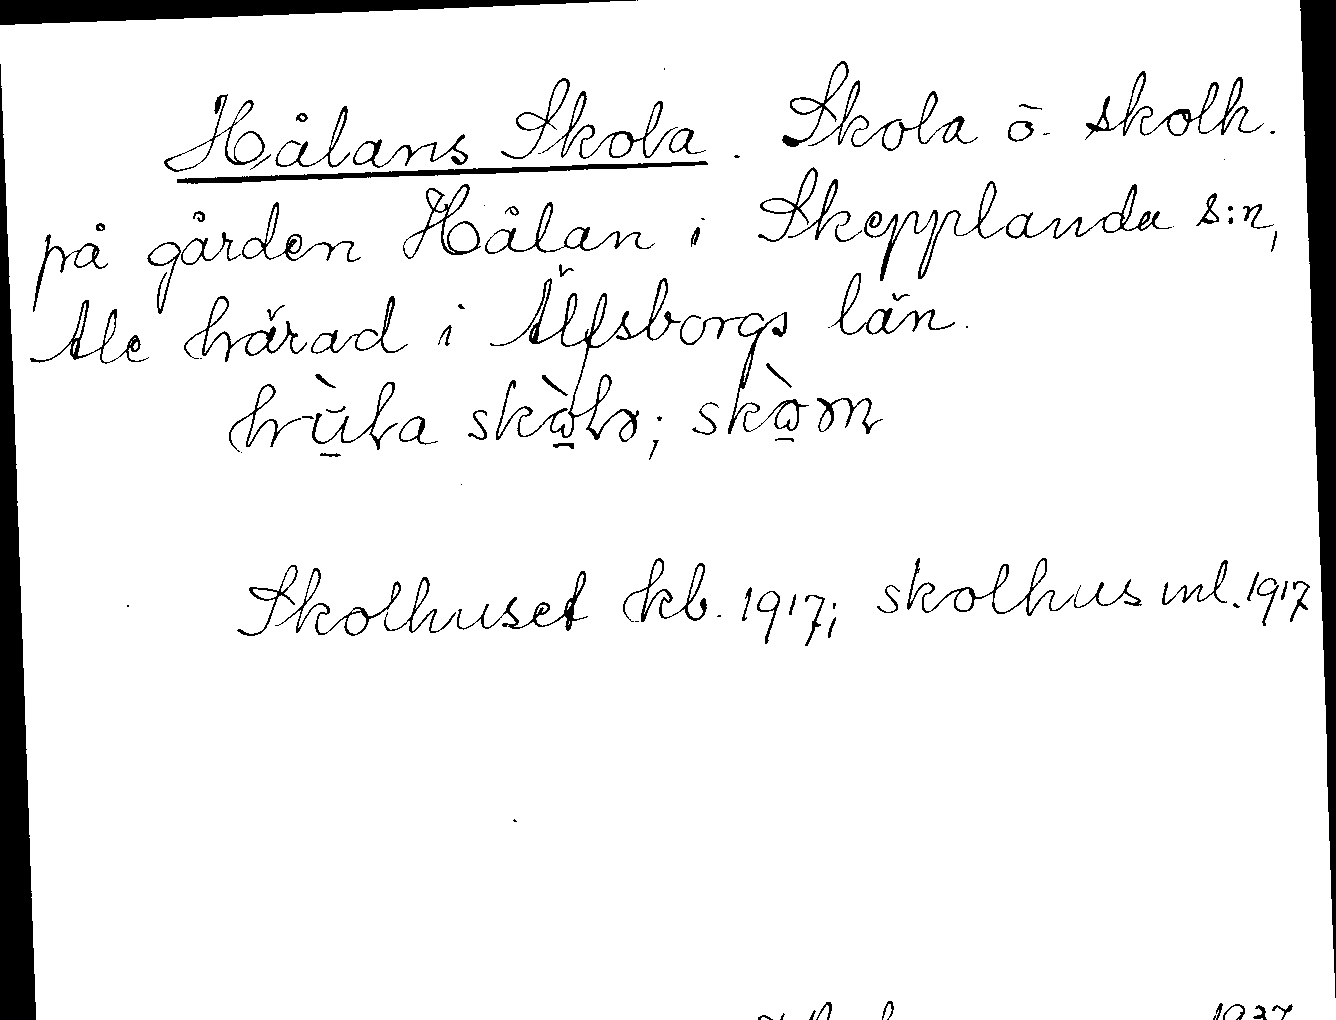 Hålans Skola. Skola ō. skolh.
på gården Hålan i Skepplanda s:n,
Ale härad i Älfsborgs län.
Skolhuset kb. 1917; skolhus ml. 1917
1937